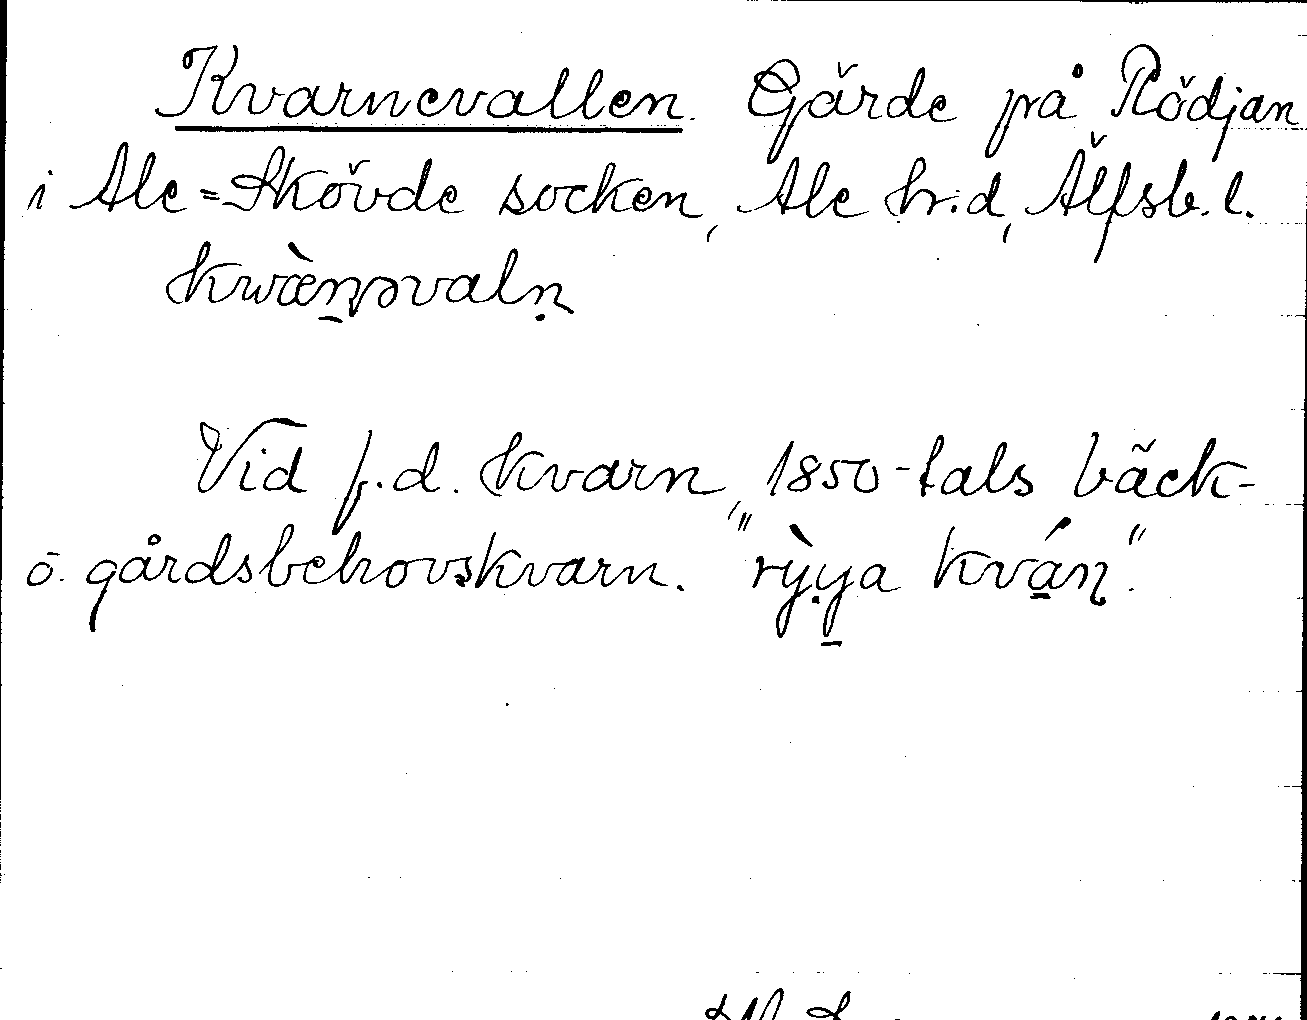 Kvarnevallen. Gärde på Rödjan
i Ale=Skövde socken, Ale hr.d, Älfsb. l.
kwæ̀n̠əvalṇ
Vid f.d. kvarn, 1850-tals bäck-
o. gårdsbehovskvarn. "rỵ̀y̠a kvá̠ṇ".